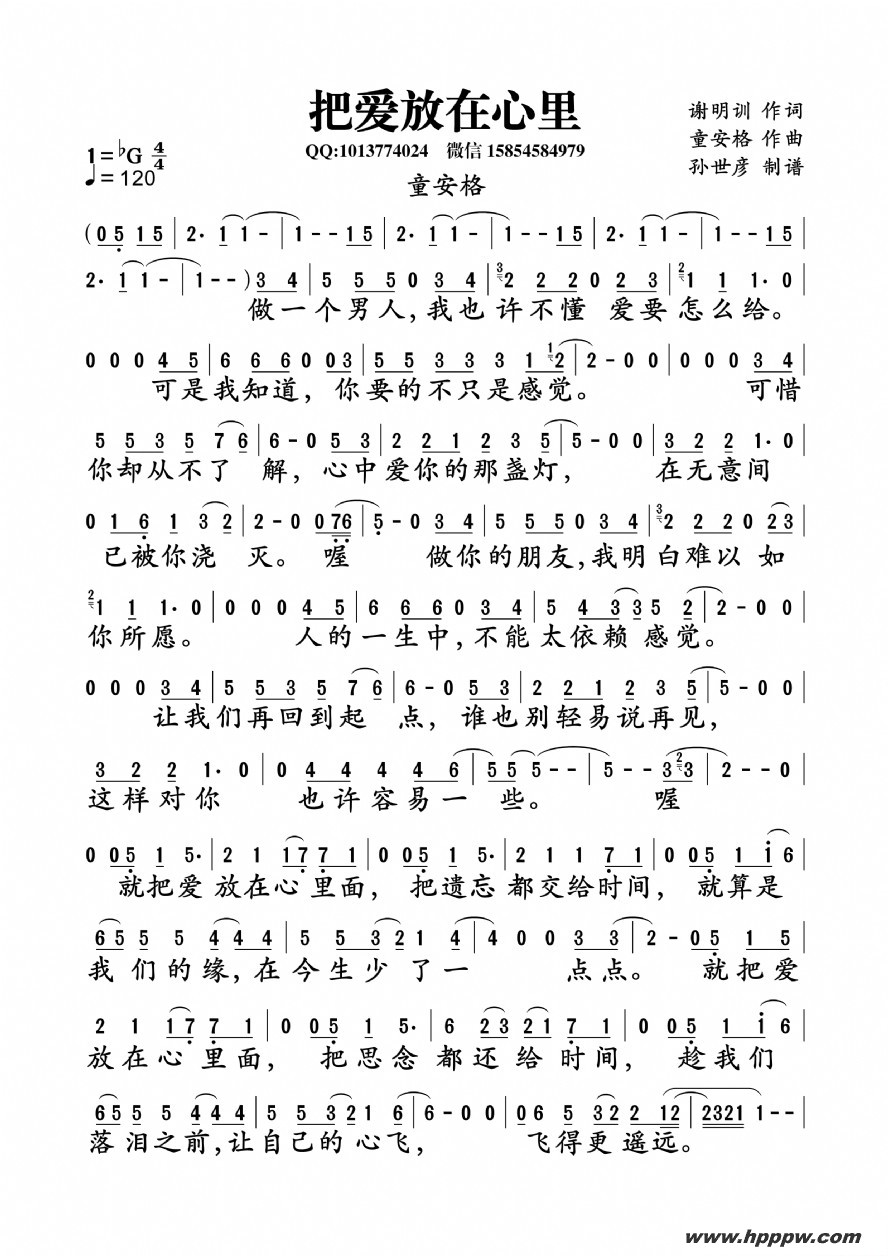 把爱放在心里
谢明训 作词
1=♭G 4/4
QQ:1013774024 微信 15854584979
童安格 作曲
♩=120
孙世彦 制谱
童安格
(0 5 1 5 | 2· 1 1 - | 1 - - 1 5 | 2· 1 1 - | 1 - - 1 5 | 2· 1 1 - | 1 - - 1 5 |
2· 1 1 - | 1 - - ) 3 4 | 5 5 5 0 3 4 | 3 2 2 2 0 2 3 | 2 1 1 1· 0 |
做一个男人,我也许不懂 爱要怎么给。
0 0 0 4 5 | 6 6 6 0 0 3 | 5 5 3 3 3 1 1 2 | 2 - 0 0 | 0 0 0 3 4 |
可是我知道, 你要的不只是感觉。 可惜
5 5 3 5 7 6 | 6 - 0 5 3 | 2 2 1 2 3 5 | 5 - 0 0 | 3 2 2 1· 0 |
你却从不了 解, 心中爱你的那盏灯, 在无意间
0 1 6 1 3 2 | 2 - 0 0 7 6 | 5 - 0 3 4 | 5 5 5 0 3 4 | 3 2 2 2 0 2 3 |
已被你浇 灭。 喔 做你的朋友,我明白难以如
2 1 1 1· 0 | 0 0 0 4 5 | 6 6 6 0 3 4 | 5 4 3 3 5 2 | 2 - 0 0 |
你所愿。 人的一生中,不能太依赖 感觉。
0 0 0 3 4 | 5 5 3 5 7 6 | 6 - 0 5 3 | 2 2 1 2 3 5 | 5 - 0 0 |
让我们再回到起 点, 谁也别轻易说再见,
3 2 2 1· 0 | 0 4 4 4 4 6 | 5 5 5 - - | 5 - - 3 2 3 | 2 - - 0 |
这样对你 也许容易一 些。 喔
0 0 5 1 5· | 2 1 1 7 7 1 | 0 0 5 1 5· | 2 1 1 7 1 | 0 0 5 1 1 6 |
就把爱 放在心 里面, 把遗忘 都交给时间, 就算是
6 5 5 5 4 4 4 | 5 5 3 2 1 4 | 4 0 0 3 3 | 2 - 0 5 1 5 |
我 们的缘,在今生少 了一 点点。 就把爱
2 1 1 7 7 1 | 0 0 5 1 5· | 6 2 3 2 1 7 1 | 0 0 5 1 1 6 |
放在心 里面, 把思念 都还 给 时间, 趁我们
6 5 5 5 4 4 4 | 5 5 3 2 1 6 | 6 - 0 0 | 0 6 5 3 2 2 1 2 | 2 3 2 1 1 - - |
落 泪之前,让自己的 心飞, 飞得更 遥远。
www.hpppw.com